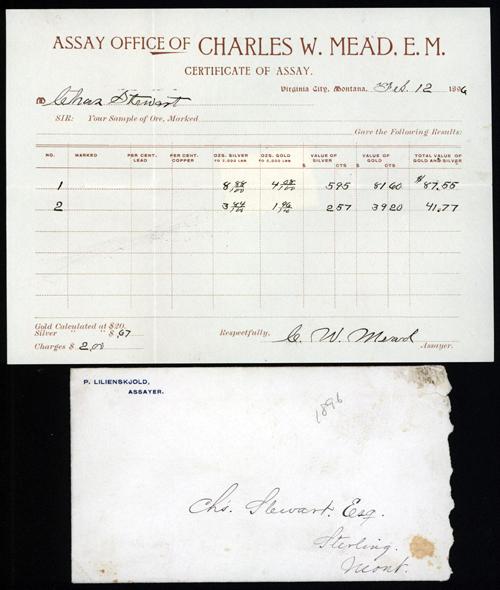 ASSAY OFFICE OF CHARLES W. MEAD, E. M.
CERTIFICATE OF ASSAY.
Virginia City, Montana, Feb. 12 1896
M Chas Stewart
SIR: Your Sample of Ore, Marked
Gave the Following Results:
NO. MARKED PER CENT. LEAD PER CENT. COPPER OZS. SILVER TO 2,000 LBS OZS. GOLD TO 2,000 LBS VALUE OF SILVER $ CTS VALUE OF GOLD $ CTS TOTAL VALUE OF GOLD AND SILVER
1 8 88/100 4 08/100 5 95 81 60 $87.55
2 3 84/100 1 96/100 2 57 39 20 41.77
Gold Calculated at $20.
Silver " " $ .67
Charges $ 2.00
Respectfully, C. W. Mead
Assayer.
P. LILIENSKJOLD,
ASSAYER.
1896
Chs. Stewart. Esq.
Sterling.
Mont.